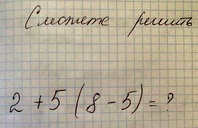 Сможете решить
2 + 5 (8 - 5) = ?